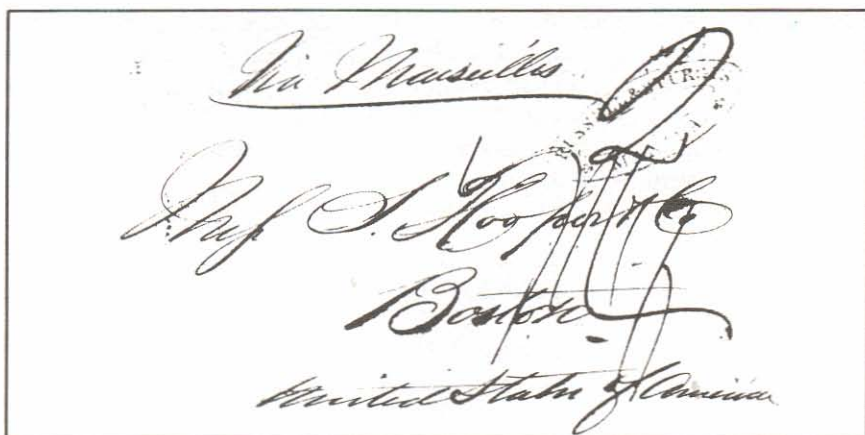 Via Marseilles
Mess S. Hooper & Co
Boston
United States of America